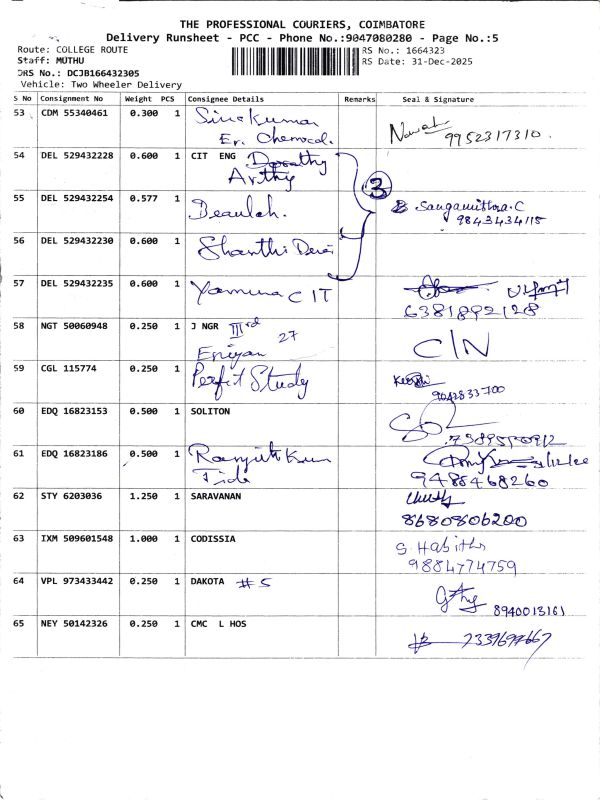 THE PROFESSIONAL COURIERS, COIMBATORE
Delivery Runsheet - PCC - Phone No.:9047080280 - Page No.:5
Route: COLLEGE ROUTE RS No.: 1664323
Staff: MUTHU RS Date: 31-Dec-2025
DRS No.: DCJB166432305
Vehicle: Two Wheeler Delivery
S No Consignment No Weight PCS Consignee Details Remarks Seal & Signature
53 CDM 55340461 0.300 1 Sivakumar
Er. Chemical. 9952317310.
54 DEL 529432228 0.600 1 CIT ENG Dorothy
Arthy
3
55 DEL 529432254 0.577 1 Deaulah. Sangamithra.C
9843434115
56 DEL 529432230 0.600 1 Shanthi Devi
57 DEL 529432235 0.600 1 Yamuna CIT
6381892128
58 NGT 50060948 0.250 1 J NGR IIIrd
Eniyan 27 C/N
59 CGL 115774 0.250 1 Perfit Study
9042833700
60 EDQ 16823153 0.500 1 SOLITON
61 EDQ 16823186 0.500 1 Ranjith Kum
Tide 9488468260
62 STY 6203036 1.250 1 SARAVANAN
8680806200
63 IXM 509601548 1.000 1 CODISSIA S. Habitha
9884774759
64 VPL 973433442 0.250 1 DAKOTA #5
8940013161
65 NEY 50142326 0.250 1 CMC L HOS 7339699667